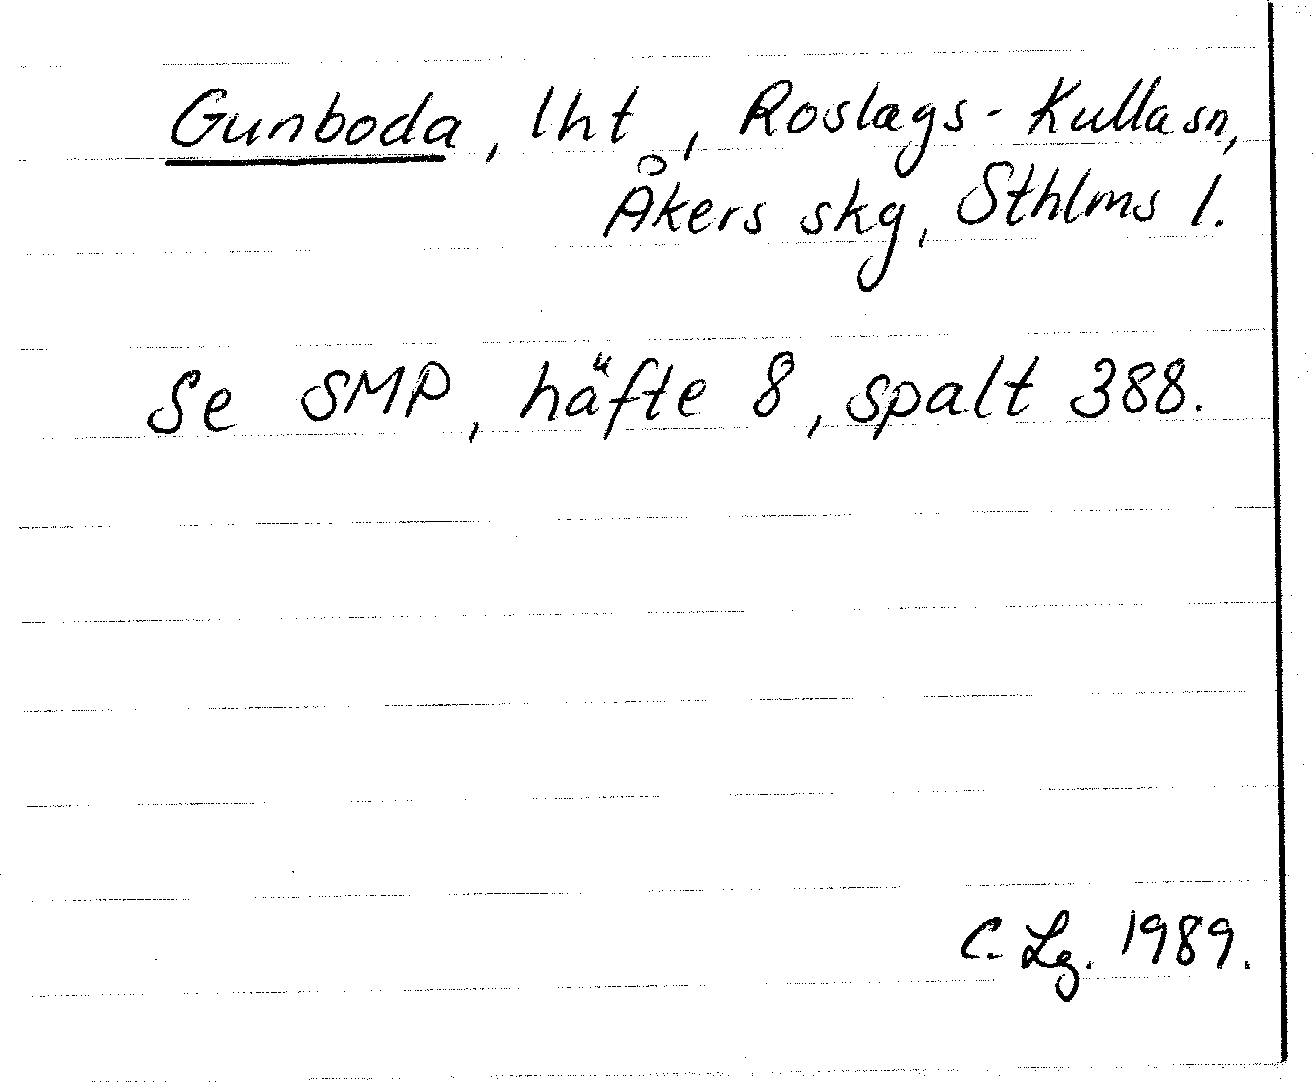 Gunboda, lht, Roslags-Kulla sn,
Åkers skg, Sthlms l.
Se SMP, häfte 8, spalt 388.
C. Lg. 1989.